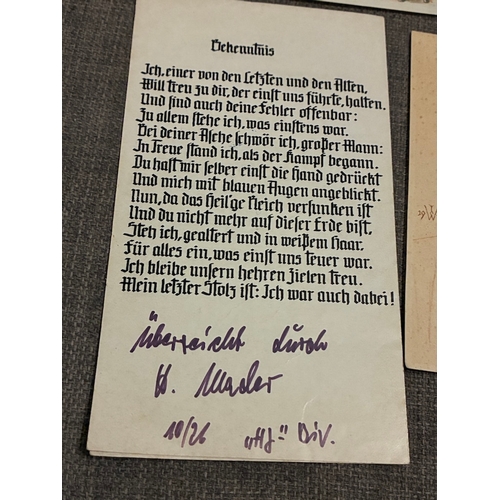 Bekenntnis
Ich, einer von den Letzten und den Alten,
Will treu zu dir, der einst uns führte, halten.
Und sind auch deine Fehler offenbar:
Zu allem stehe ich, was einstens war.
Bei deiner Asche schwör ich, großer Mann:
In Treue stand ich, als der Kampf begann.
Du hast mir selber einst die Hand gedrückt
Und mich mit blauen Augen angeblickt.
Nun, da das Heil'ge Reich versunken ist
Und du nicht mehr auf dieser Erde bist,
Steh ich, gealtert und in weißem Haar.
Für alles ein, was einst uns teuer war.
Ich bleibe unsern hehren Zielen treu.
Mein letzter Stolz ist: Ich war auch dabei!
Überreicht durch
H. Mader
10/26 „HJ" Div.